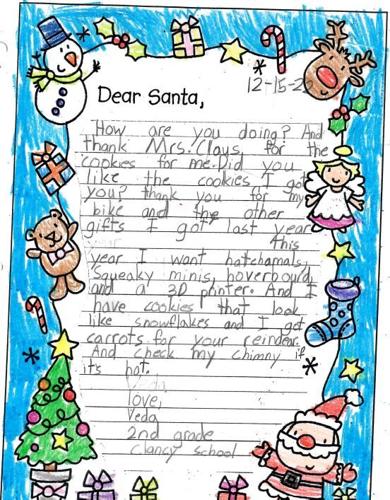 12-15-2
Dear Santa,
How are you doing? And
thank Mrs. Claus, for the
cookies for me. Did you
like the cookies I got
you? thank you for my
bike and the other
gifts I got last year
This
year I want hatchamals,
Squeaky minis, hoverbourd,
and a 3D printer. And I
have cookies that look
like snowflakes and I got
carrots for your reindear.
And check my chimny if
it's hot.
Veda
love,
Veda
2nd grade
Clancy school